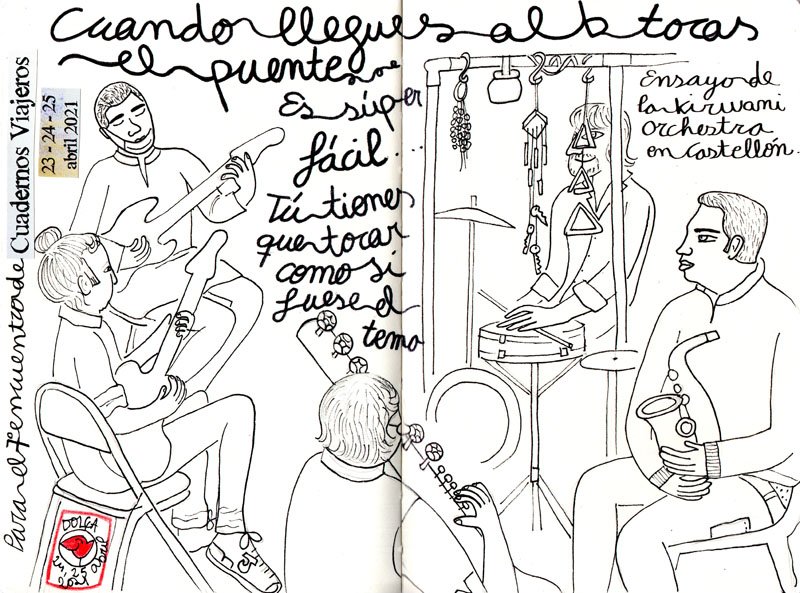 Cuando llegues al b tocas
el puente
Es súper
fácil...
Tú tienes
que tocar
como si
fuese el
tema
Ensayo de
la Kirwani
Orchestra
en Castellón.
Para el 7 encuentro de Cuadernos Viajeros
23 - 24 - 25
abril 2021
24, 25 abril
2021